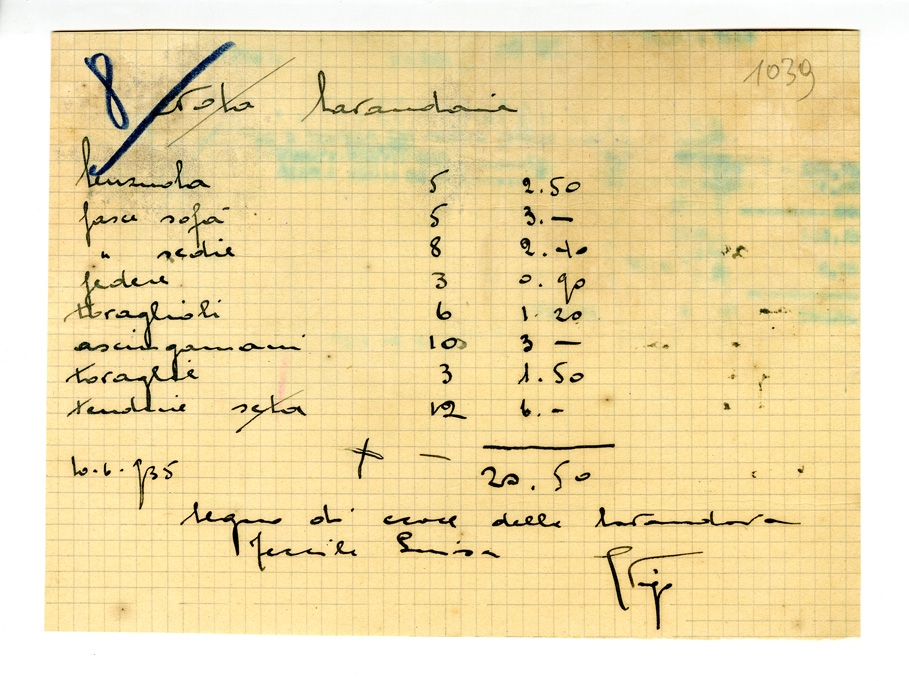 8
1039
Nota lavandaia
lenzuola 5 2.50
fasce sofà 5 3.—
" sedie 8 2.40
federe 3 0.90
tovaglioli 6 1.20
asciugamani 10 3 —
tovaglie 3 1.50
tendine seta 12 6.—
10.6.935 + — 20.50
segno di croce della lavandara
Luisa